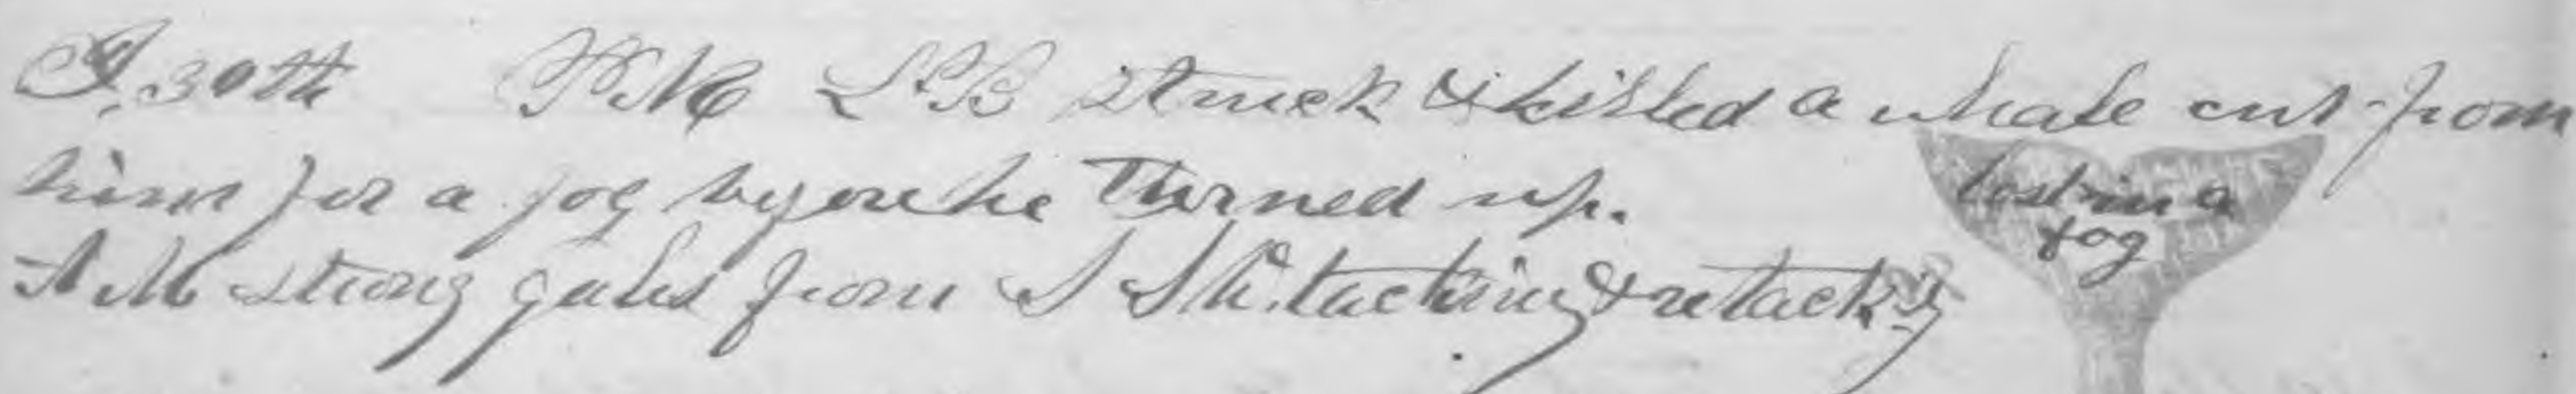 T. 30th PM LB struck & killed a whale cut from
him for a fog before he Turned up.
lost in a
fog
AM strong gales from S SW. tacking & retack'g